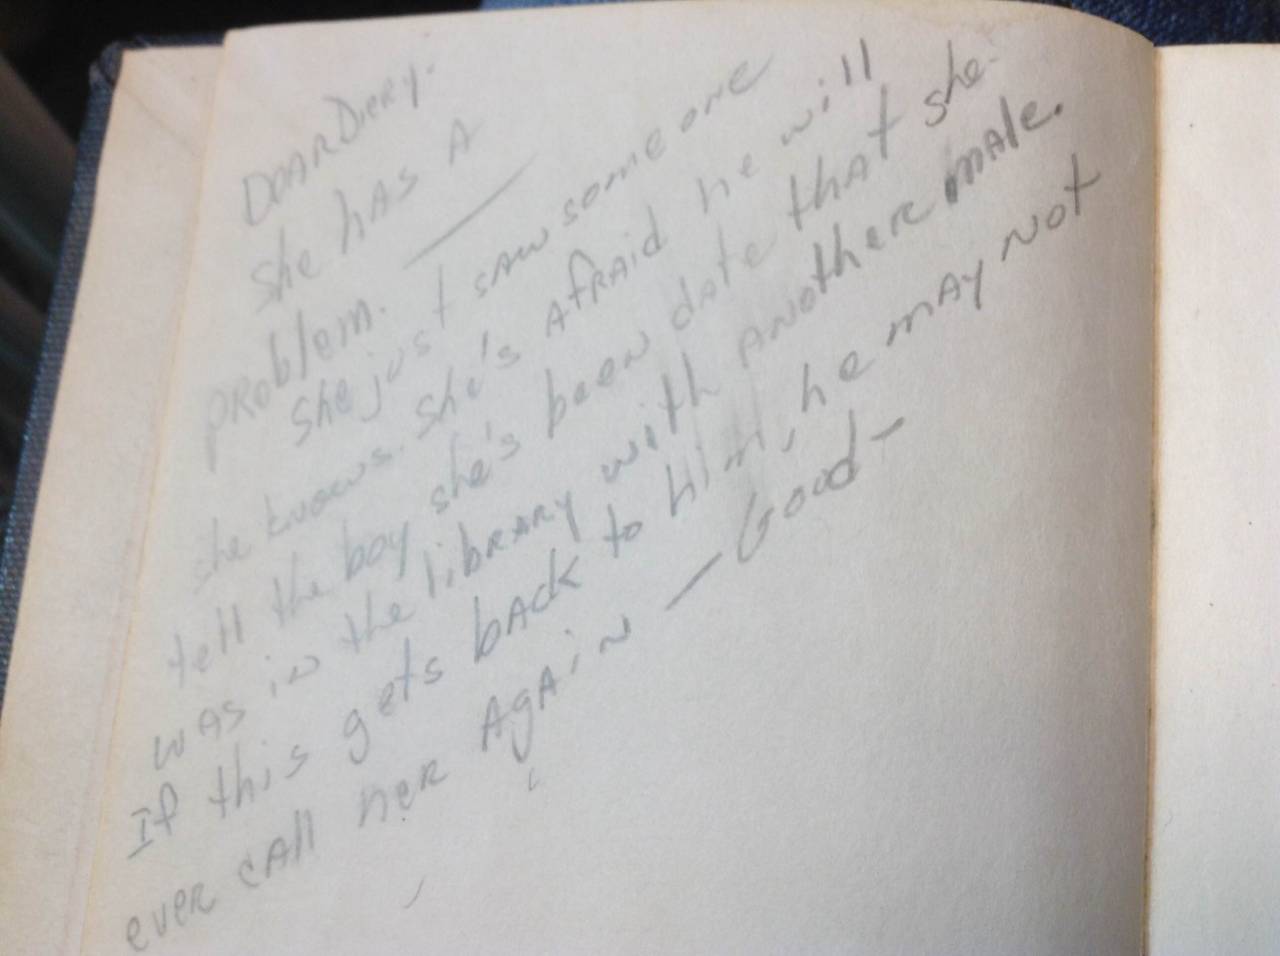 DEAR DIERY-
She has A
problem.
She just saw someone
she knows. She's Afraid he will
tell the boy she's been date that she
was in the library with Another male.
If this gets back to him, he may not
ever call her Again — Good —